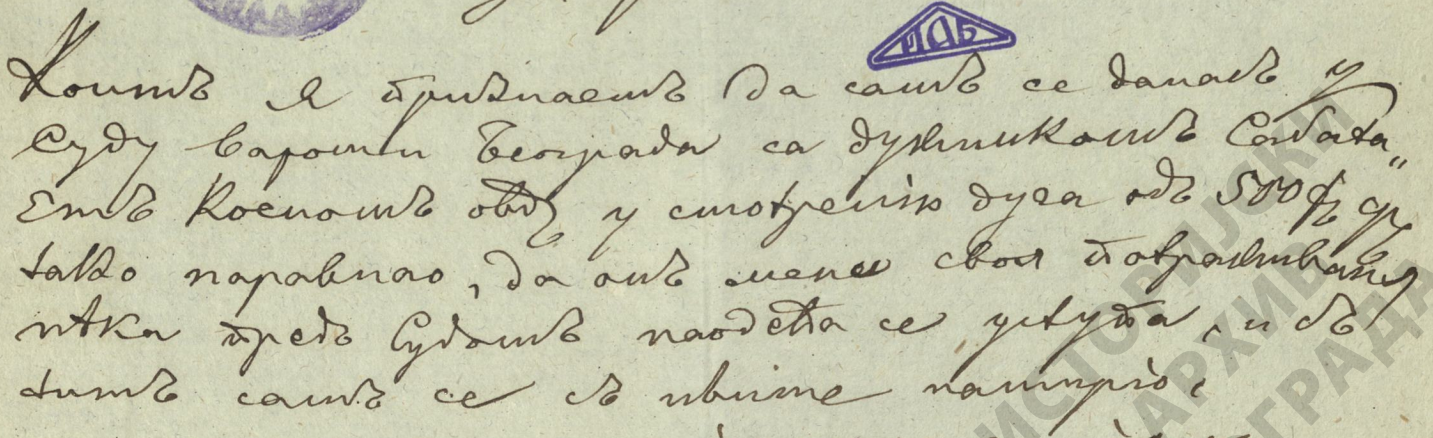 Коимъ я признаемъ да самъ се данасъ у
Суду вароши Београда са дужникомъ Сабата„
емъ Коеномъ овд. у смотренію дуга одъ 500 ф. ср.
тако поравнао, да онъ мени своя потраживаня
нѣка предъ Судомъ наодећа се уступа, и съ
тимъ самъ се съ ньиме намиріо.
ИСТОРИЈСКИ
АРХИВ
БЕОГРАДА